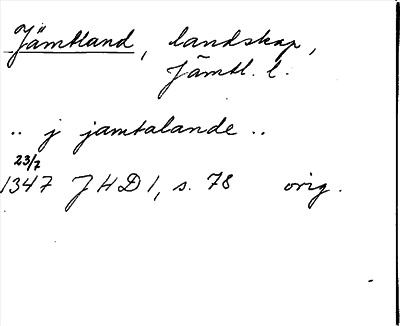 Jämtland, landskap,
Jämtl. l.
.. j jamtalande ..
23/7
1347 JHD 1, s. 78 orig.